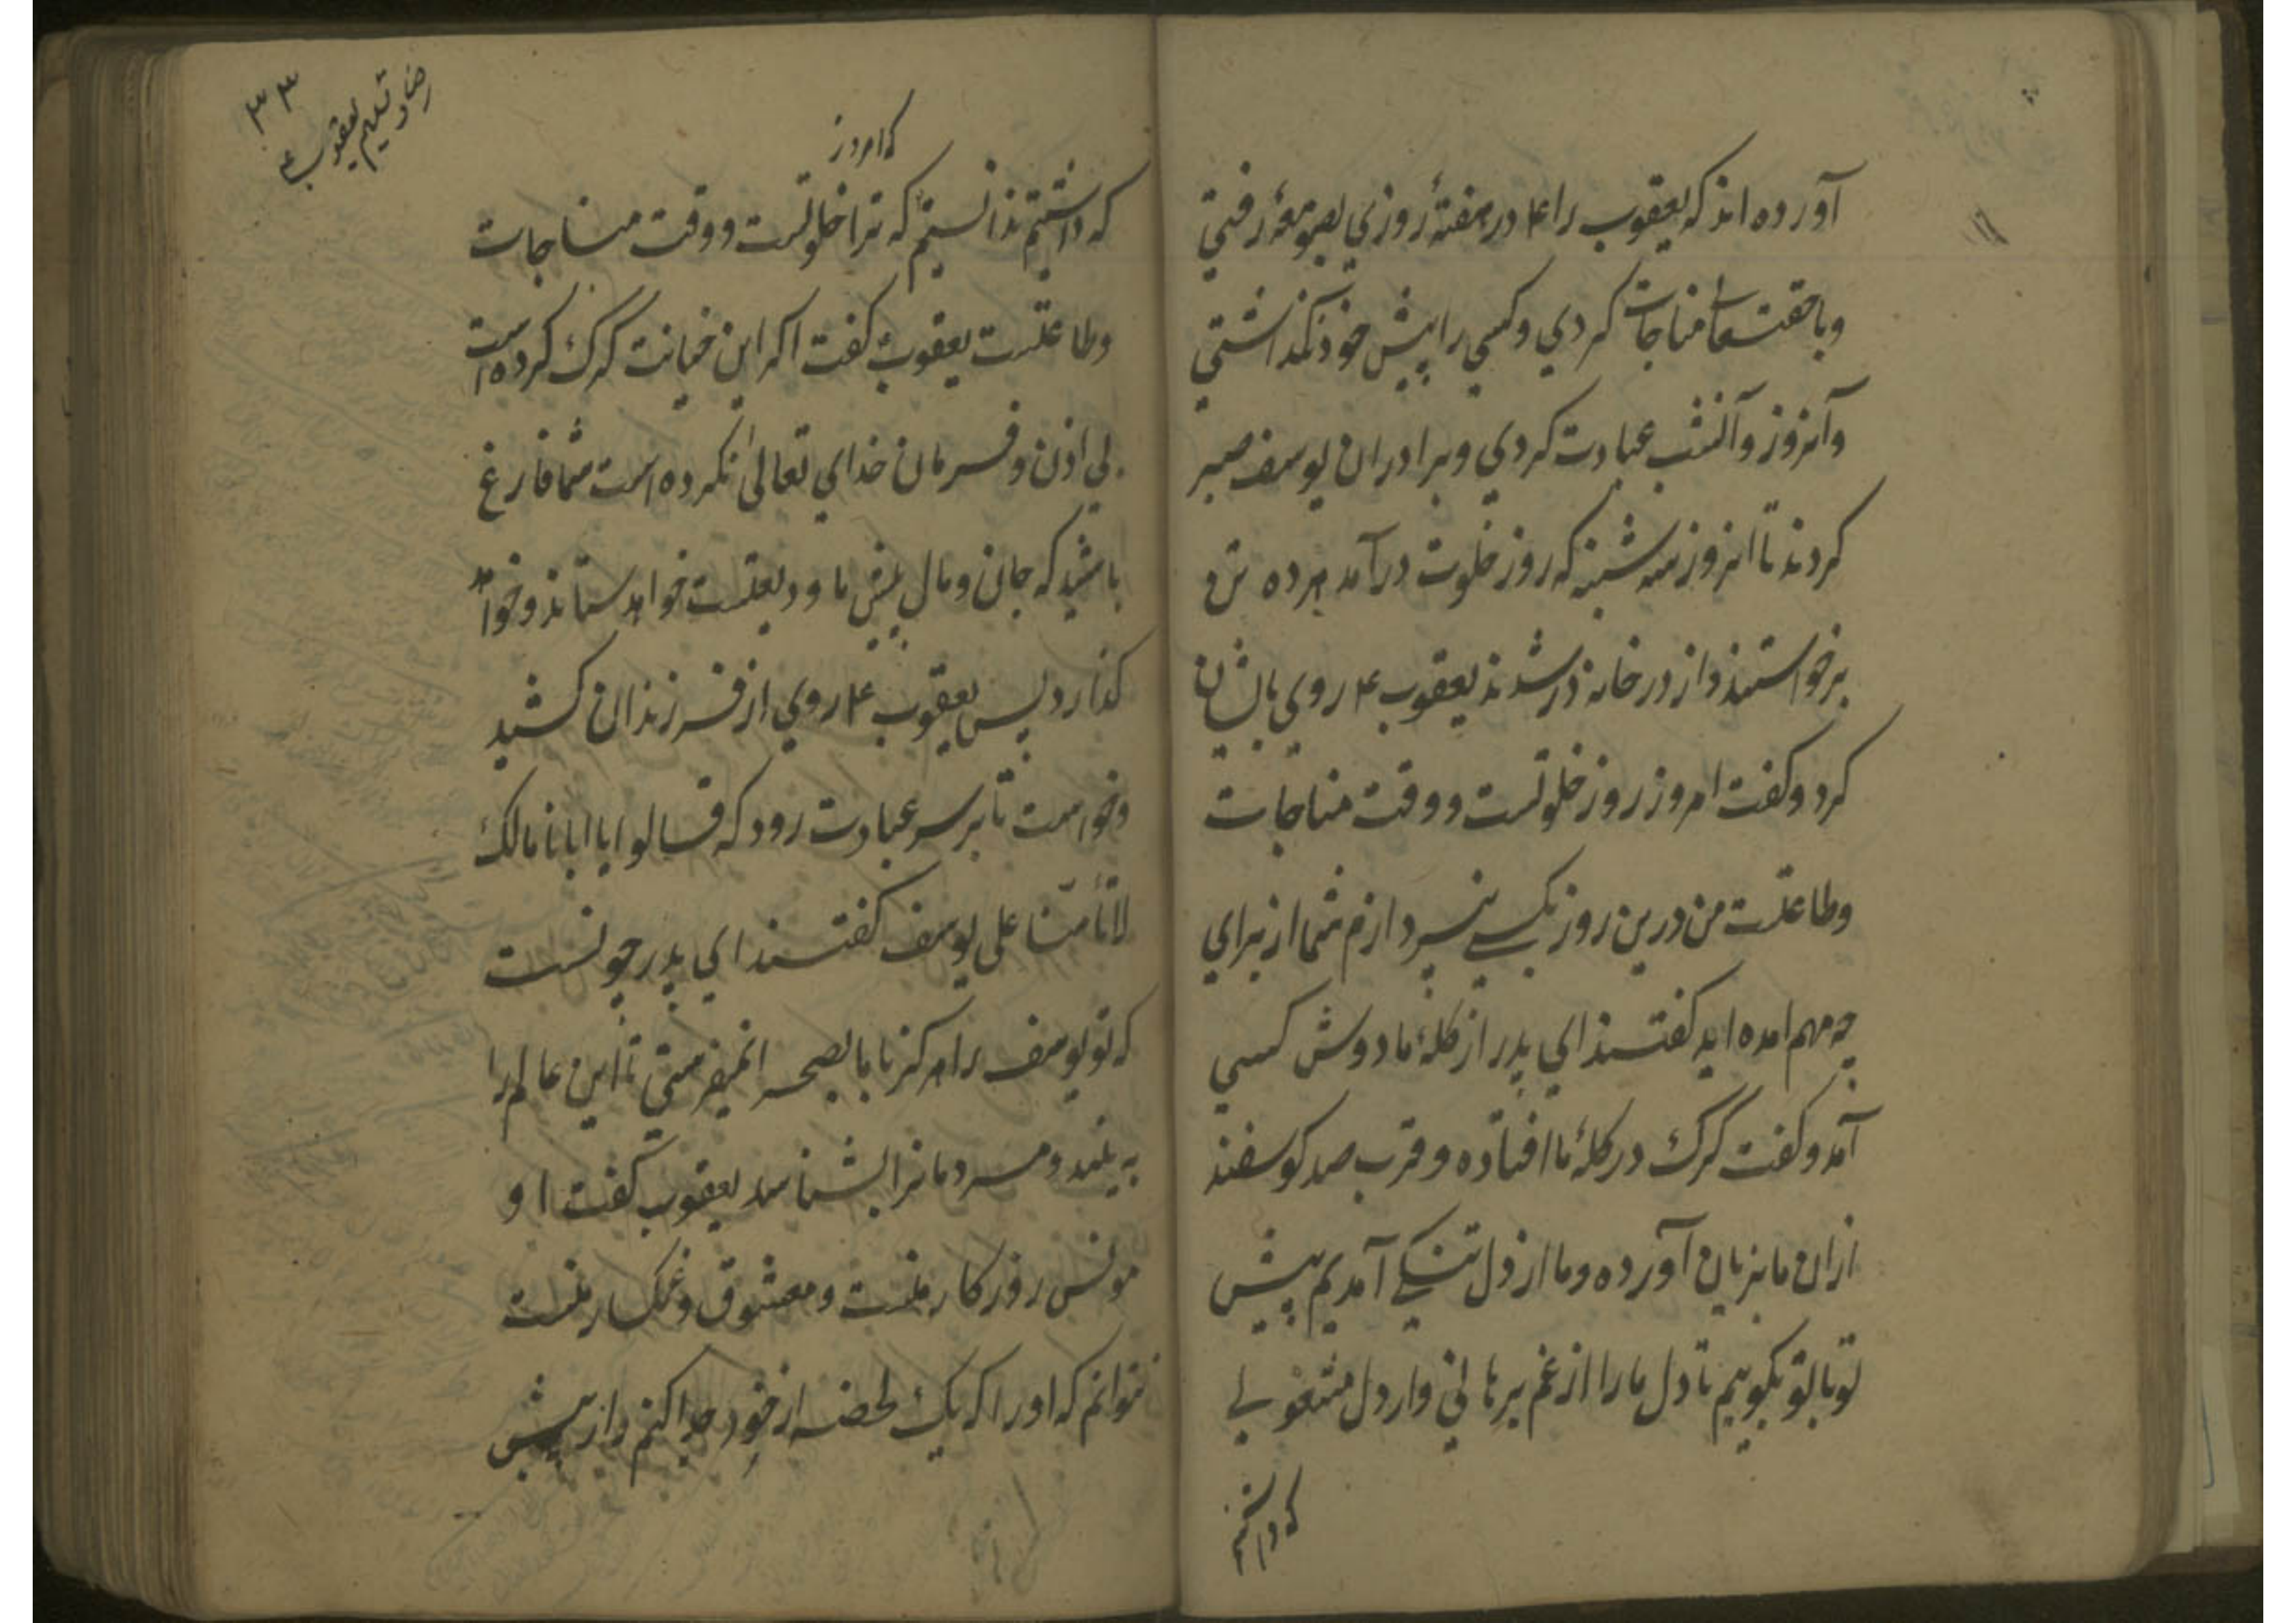 آورده اند که یعقوب را ع در هفتهٔ روزی بصومعهٔ رفتی
و با حق تعا مناجات کردی و کسی را پیش خود نکذاشتی
و آنروز و آنشب عبادت کردی و برادران یوسف صبر
کردند تا انروز سه شنبه که روز خلوت درآمد هر ده تن
برخواستند و از در خانه در شدند یعقوب ع روی بایشان
کرد و کفت امروز روز خلوتست و وقت مناجات
و طاعتست من درین روز بکسی نپردازم شما از برای
چه مهم امده اید کفتند ای پدر از کلهٔ ما دوش کسی
آمد و کفت کرک در کلهٔ ما افتاده و قرب صد کوسفند
ازان ما بزیان آورده و ما از دل تنکی آمدیم پیش
تو تا بتو بکوییم تا دل ما را از غم برهانی و از دل مشغولی
که داشتیم
۳۳
رضا و تسلیم یعقوب ع
که امروز
که داشتیم ندانستیم که ترا خلوتست و وقت مناجات
و طاعتست یعقوب کفت اکر این خیانت کرک کرده است
بی اذن و فرمان خدای تعالی نکرده است شما فارغ
باشید که جان و مال پیش ما ودیعتست خواهد ستاند و خواهد
کذارد پس یعقوب ع روی از فرزندان کشید
و خواست تا بر سر عبادت رود که قالوا یا ابانا مالک
لا تأمنّا علی یوسف کفتند ای پدر چونست
که تو یوسف را هرکز با ما بصحرا نمیفرستی تا این عالم را
به بیند و مردمانرا بشناسد یعقوب کفت او
مونس روزکار منست و معشوق و غمکسار منست
نتوانم که او را که یک لحضه از خود جدا کنم و از پیش